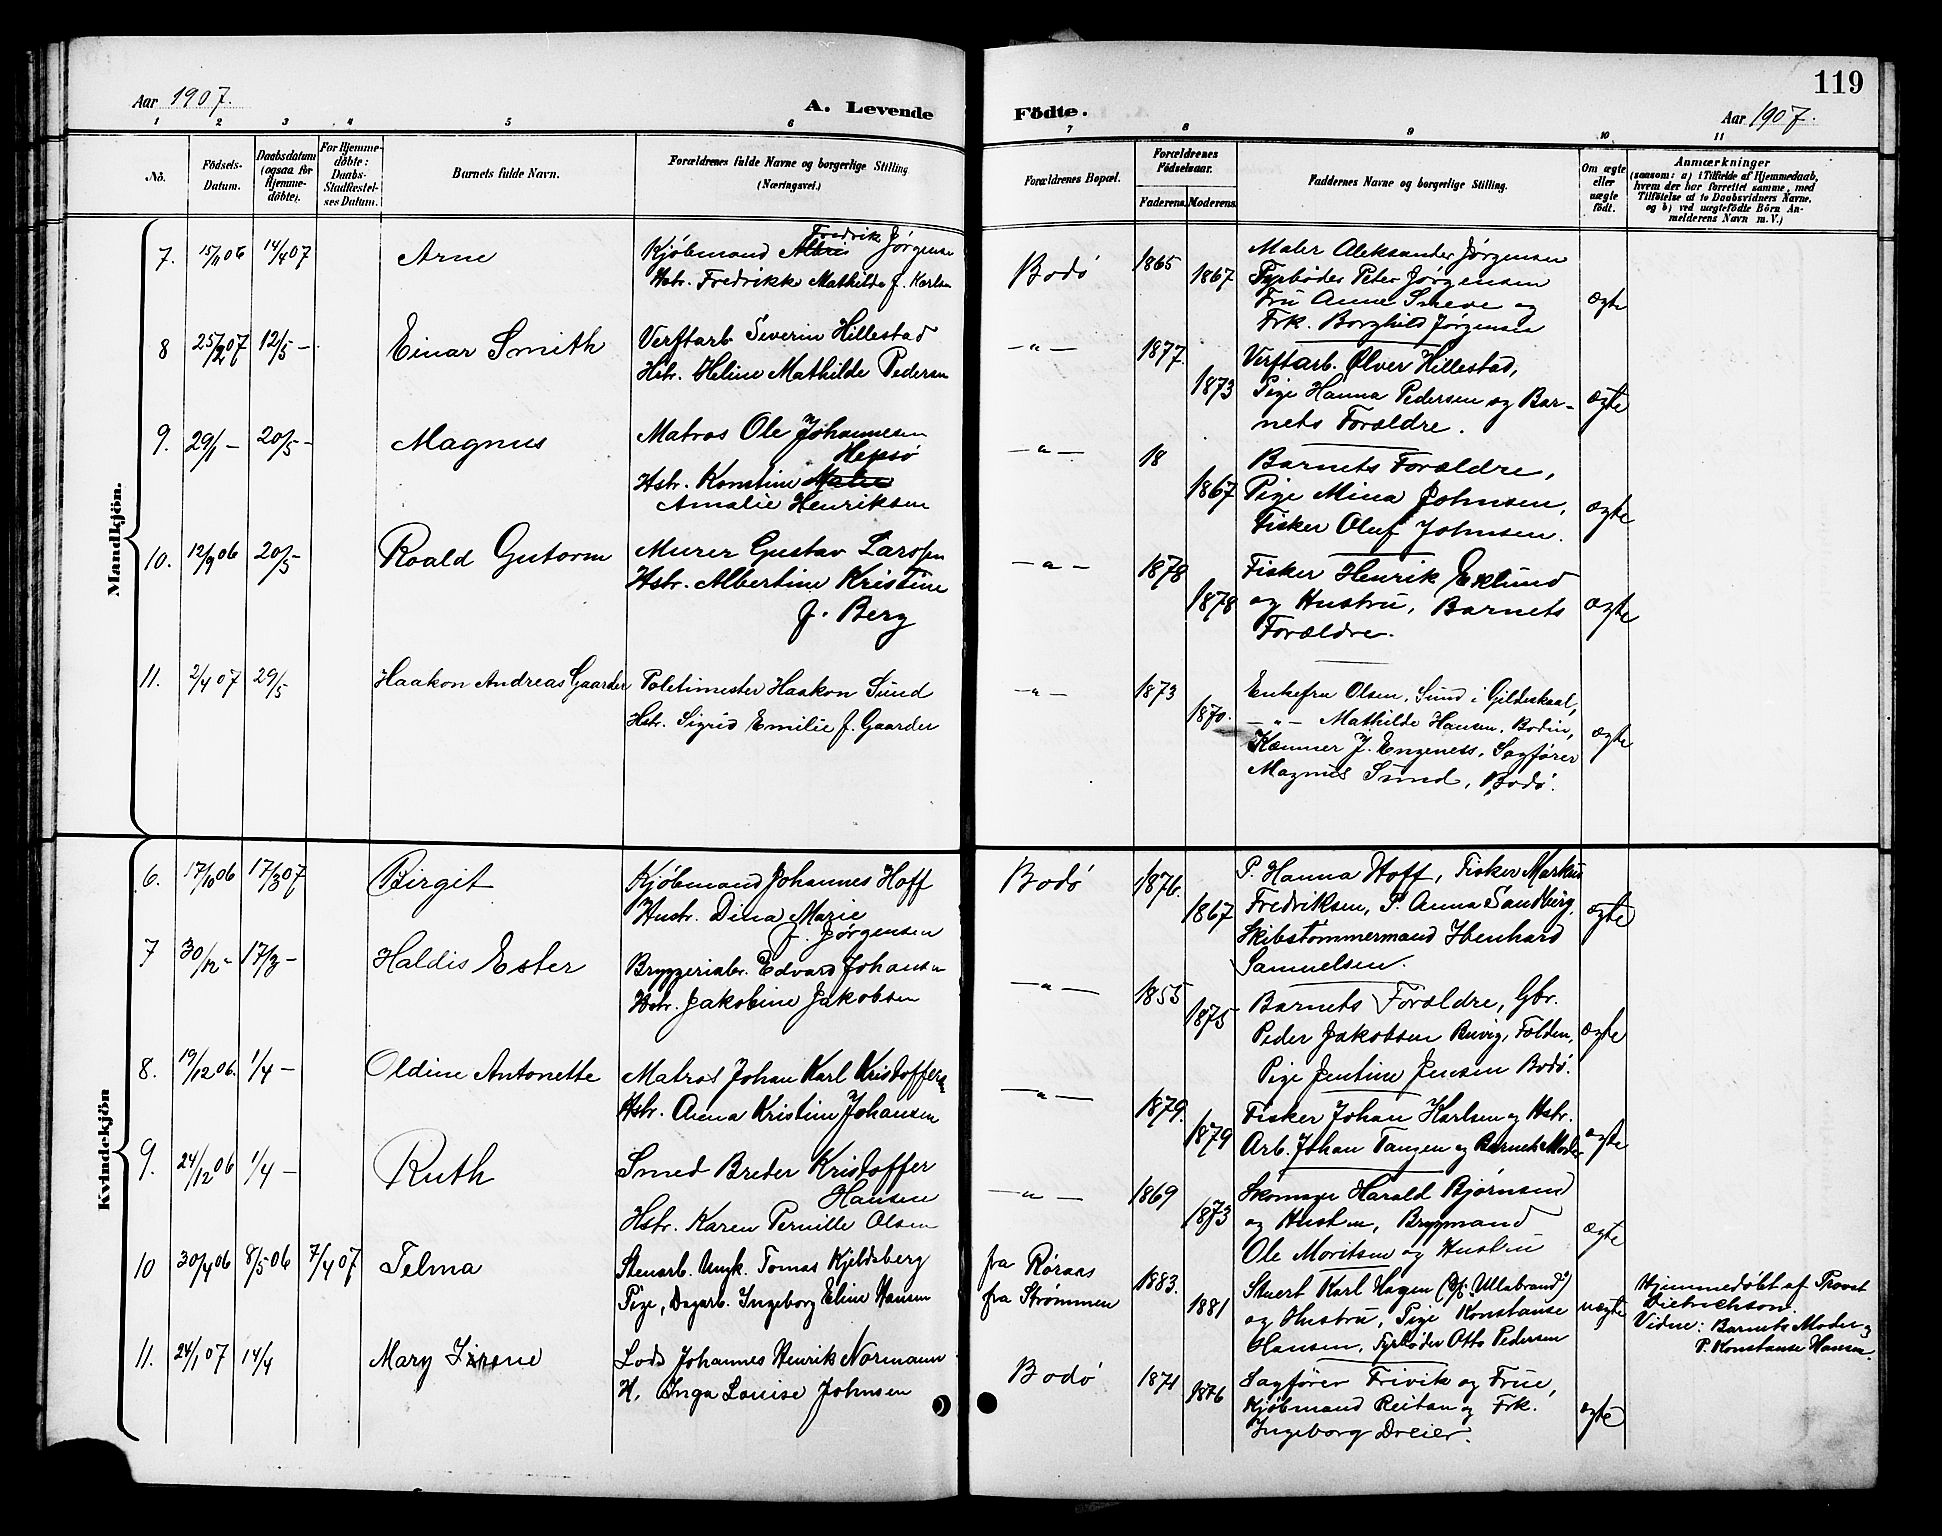 119
Aar 1907.
A. Levende
Födte.
Aar 1907.
1 2 3 4 5 6 7 8 9 10 11
No.
Födsels-
Datum.
Daabsdatum
(ogsaa for
Hjemme-
döbte).
For Hjemme-
döbte:
Daabs-
Stadfæstel-
ses Datum.
Barnets fulde Navn.
Forældrenes fulde Navne og borgerlige Stilling
(Næringsvei.)
Forældrenes Bopæl.
Forældrenes
Födselsaar.
Faderens. Moderens.
Faddernes Navne og borgerlige Stilling.
Om ægte
eller
uægte
födt.
Anmærkninger
(saasom: a) i Tilfælde af Hjemmedaab,
hvem der har forrettet samme, med
Tilföielse af to Daabsvidners Navne,
og b) ved uægtefödte Börn An-
melderens Navn m. V.)
Mandkjön.
7. 15/11 06 14/4 07 Arne
Kjøbmand Fredrik Jørgensen
Hstr. Fredrikke Mathilde f. Karlsen
Bodø 1865 1867
Maler Aleksander Jørgensen
Fyrbøder Peter Jørgensen
Fru Anna Sneve og
Frk. Borghild Jørgensen
ægte
8 25/2 07 12/5 – Einar Smith
Verftarb Severin Hillestad
Hstr. Heline Mathilde Pedersen
– " – 1877. 1873
Verftarb. Ølver Hillestad,
Pige Hanna Pedersen og Bar-
nets Forældre.
ægte
9. 29/1 – 20/5 – Magnus
Matros Ole Johannesen
Hepsø
Hstr. Konstine
Amalie Henriksen
– " – 18 1867
Barnets Forældre,
Pige Mina Johnsen,
Fisker Oluf Johnsen.
ægte
10. 12/9 06 20/5 – Roald Gutorm
Murer Gustav Larssen
Hstr. Albertine Kristine
f. Berg
– " – 1878 1878
Fisker Henrik Eklund
og Hustru, Barnets
Forældre.
ægte
11. 2/4 07 29/5 Haakon Andreas Gaarder
Politimester Haakon Sund
Hstr. Sigrid Emilie f. Gaarder
– " – 1873 1870.
Enkefru Olsen, Sund i Gildeskaal,
– " – Mathilde Hansen, Bodin,
Kæmner J. Engeness, Sagfører
Magnus Sund, Bodø.
ægte
Kvindekjön
6. 17/10 06 17/3 07 Birgit
Kjøbmand Johannes Hoff
Hustr. Dina Marie
f. Jørgensen
Bodø 1876. 1867
P. Hanna Hoff, Fisker Markus
Fredriksen, P. Anna Sandberg,
Skibstømmermand Ibenhard
Samuelsen.
ægte
7 30/12 – 17/3 – Haldis Ester
Bryggeriabr. Edvard Johansen
Hstr. Jakobine Jakobsen
– " – 1855 1875
Barnets Forældre, Gbr.
Peder Jakobsen Folden,
Pige Jentine Jensen Bodø.
ægte
8. 19/12 06. 1/4 – Oldine Antonette
Matros Johan Karl Kristoffersen
Hstr. Anna Kristine Johansen
– " – 1879. 1879
Fisker Johan Karlsen og Hstr.
Arb. Johan Tangen og Barnets Moder
ægte
9. 24/12 06 1/4 – Ruth
Smed Breder Kristoffer
Hansen
Hstr. Karen Pernille Olsen
– " – 1869 1873
Skomager Harald Bjørnsen
og Hustru, Bryggmand
Ole Moritsen og Hustru
ægte
10 30/4 06 8/5 06 7/4 07 Telma
Stenarb. Ungk. Tomas Kjeldsberg
Pige, Dagarb. Ingeborg Eline Hansen
fra Røraas
fra Strømmen
1883. 1881
Stuert Karl Hagen (D/s. "Ullabrand")
og Hustru, Pige Konstanse
Hansen, Fyrbøder Otto Pedersen
uægte
Hjemmedøbt af Provst
Dietrichson.
Vidne: Barnets Moder og
P. Konstanse Hansen.
11. 24/1 07 14/4 Mary
Lods Johannes Henrik Normann
H. Inga Louise Johnsen
Bodø 1871 1876
Sagfører Trivik og Frue,
Kjøbmand Reitan og Frk.
Ingeborg Dreier.
ægte